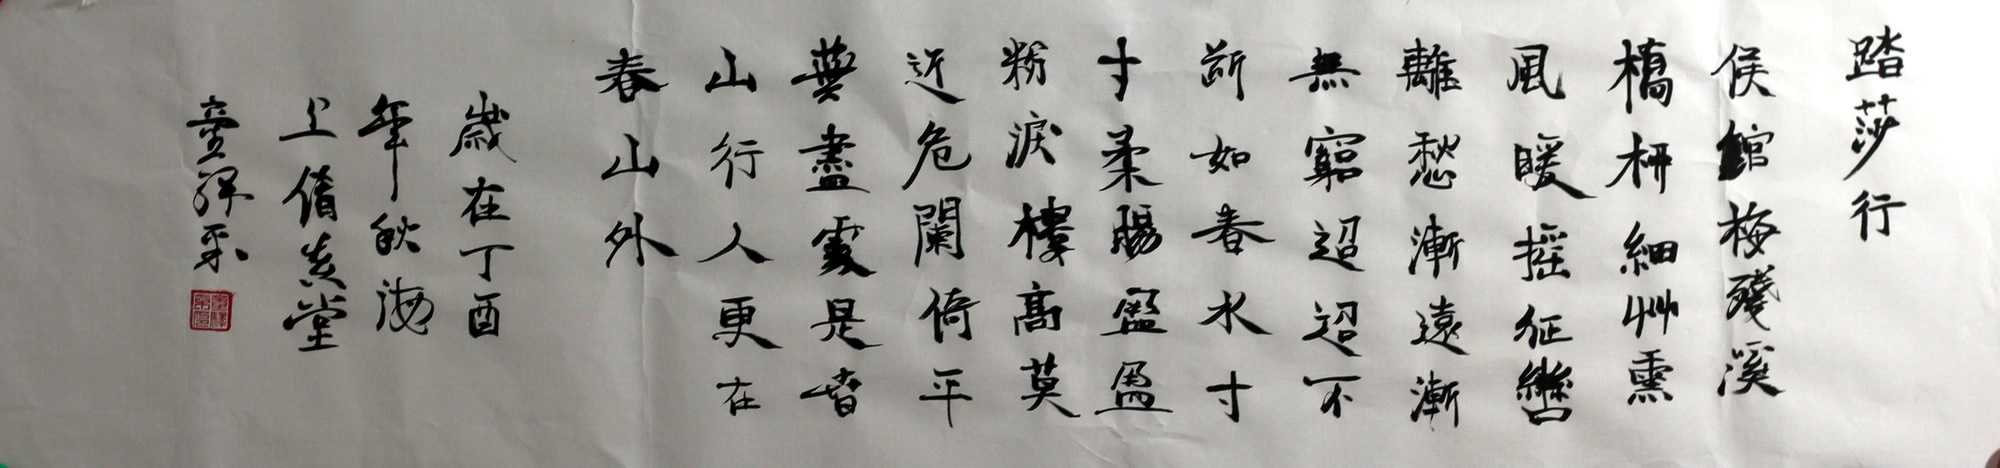 踏莎行
侯館梅殘溪
橋柳細艸熏
風暖搖征轡
離愁漸遠漸
無窮迢迢不
斷如春水寸
寸柔腸盈盈
粉淚樓高莫
近危闌倚平
蕪盡處是春
山行人更在
春山外
歲在丁酉
年秋海
上堂
童